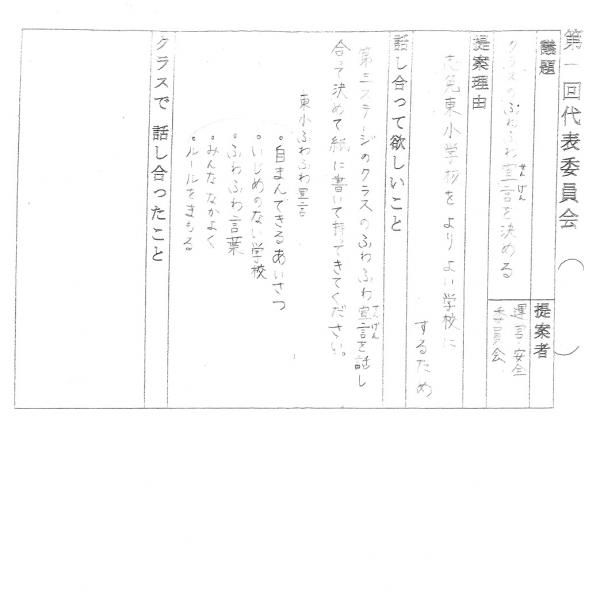 第一回代表委員会（　　）
議題
クラスのふわふわ宣言を決める
せんげん
提案者
運営・安全
委員会
提案理由
東小学校をよりよい学校に
するため
話し合って欲しいこと
第三ステージのクラスのふわふわ宣言を話し
せんげん
合って決めて紙に書いて持ってきてください。
東小ふわふわ宣言
・自まんできるあいさつ
・いじめのない学校
・ふわふわ言葉
・みんななかよく
・ルールをまもる
クラスで 話し合ったこと